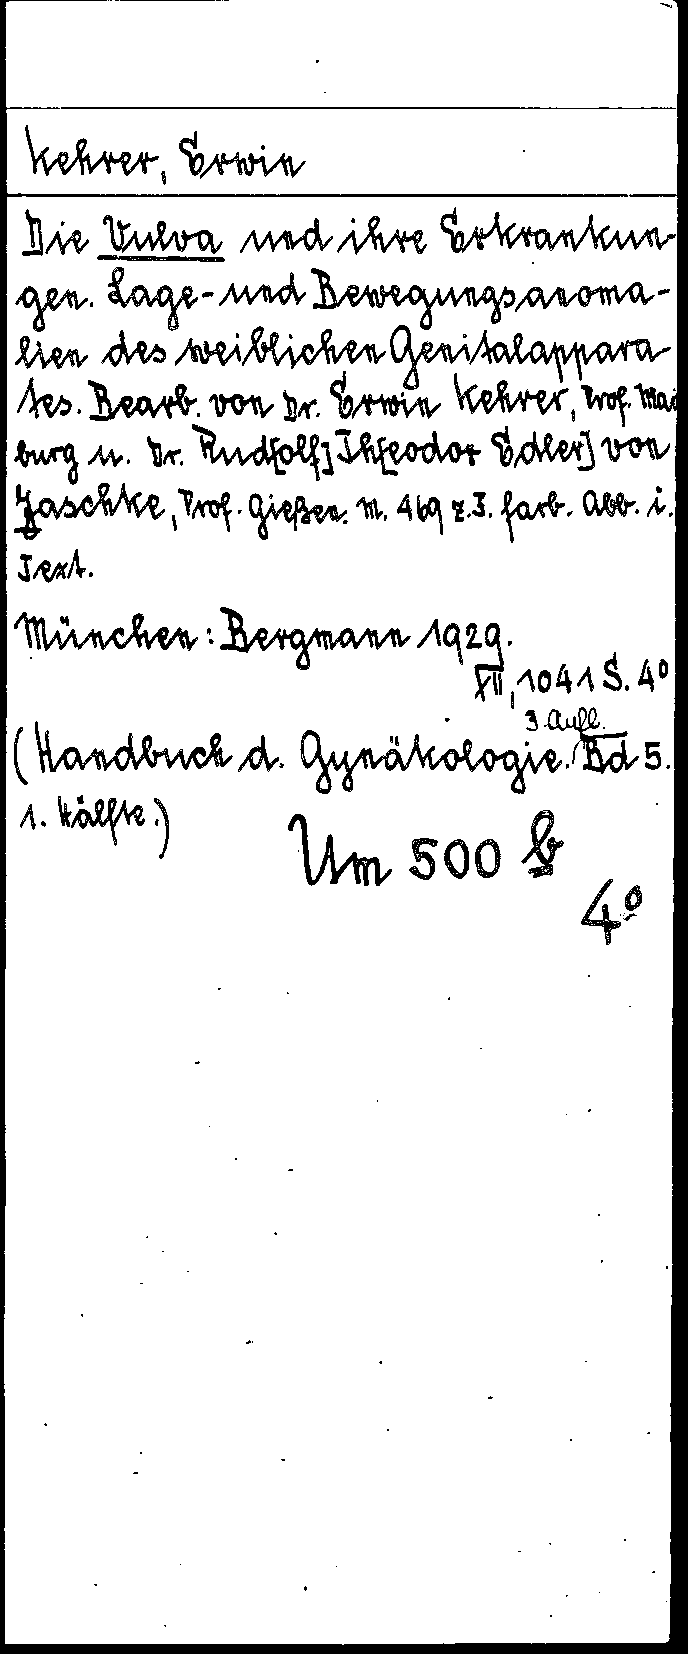 Kehrer, Erwin
Die Vulva und ihre Erkrankun-
gen. Lage- und Bewegungsanoma-
lien des weiblichen Genitalappara-
tes. Bearb. von Dr. Erwin Kehrer, Prof. Mar
burg u. Dr. Rud[olf] Th[eodor Edler] von
Jaschke, Prof. Gießen. M. 469 z.T. farb. Abb. i.
Text.
München: Bergmann 1929.
XII, 1041 S. 4°
3. Aufl.
(Handbuch d. Gynäkologie. Bd 5.
1. Hälfte.)
Um 500 b
4°